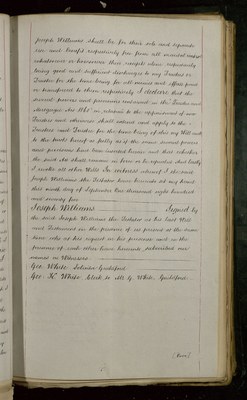 Joseph Williams shall be for their sole and separate
use and benefit respectively free from all marital control
interference or however their receipts alone respectively
being good and sufficient discharges to my Trustees or
Trustee for the time being for all monies and effects paid
or transferred to them respectively I declare that the
several powers and provisions contained in "the Trustees and
Mortgagees Act 1860" in relation to the appointment of new
Trustees and otherwise shall extend and apply to the
Trustees and Trustee for the time being of this my Will and
to the trusts hereof as fully as if the same several powers
and provisions had been inserted herein and that whether
the said Act shall remain in force or be repealed And lastly
I revoke all other Wills In witness whereof I the said
Joseph Williams the Testator have hereunto set my hand
this ninth day of September One thousand eight hundred
and seventy five
Joseph Williams Signed by
the said Joseph Williams the Testator as his last Will
and Testament in the presence of us present at the same
time who at his request in his presence and in the
presence of each other have hereunto subscribed our
names as Witnesses
Geo. White Solicitor Guildford
Geo. White Clerk to Mr G. White, Guildford